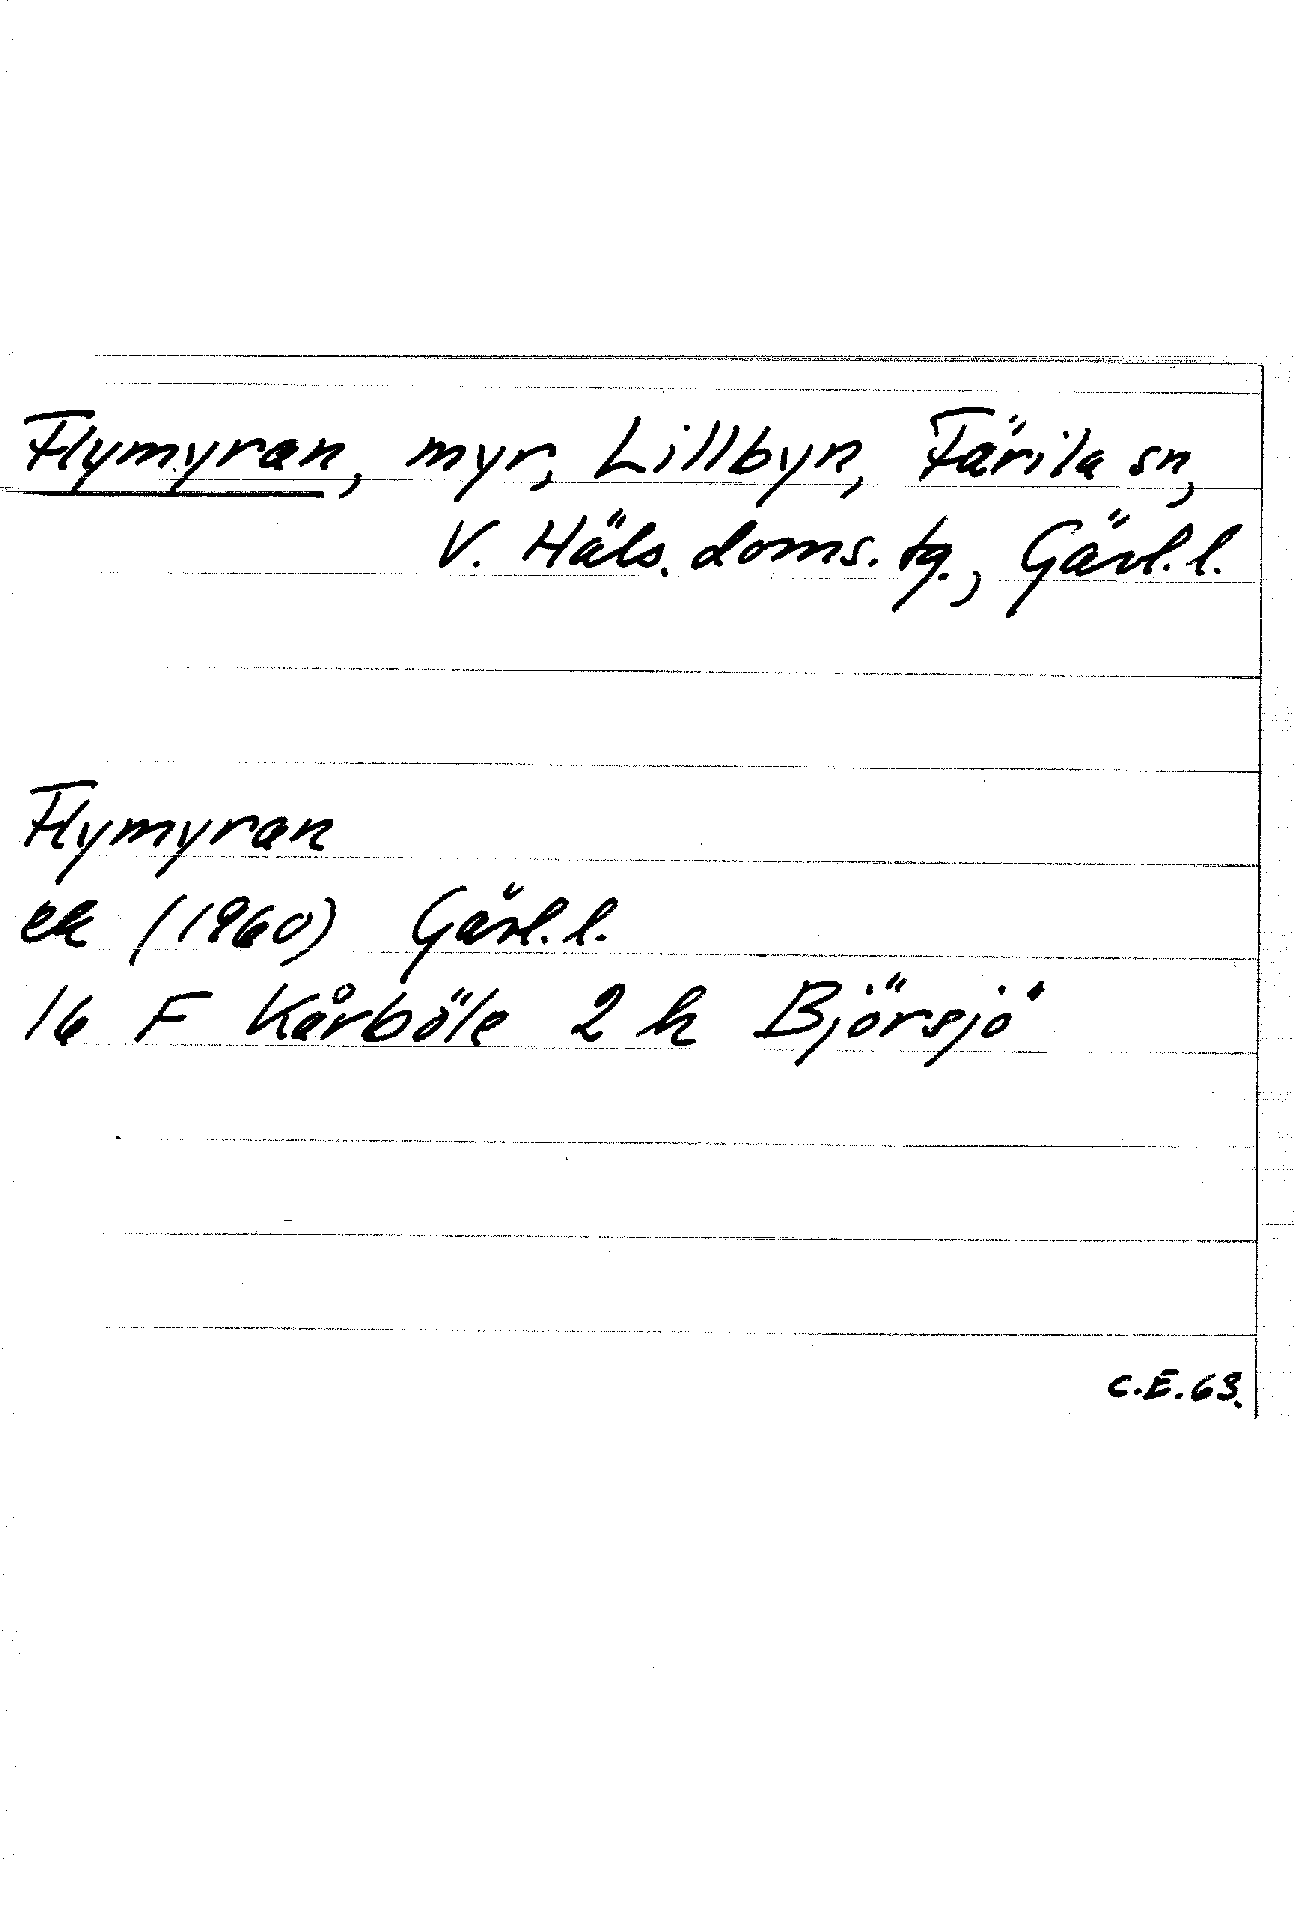 Flymyran, myr, Lillbyn, Färila sn,
V. Häls. doms. tg., Gävl. l.
Flymyran
ek (1960) Gävl. l.
16 F Kårböle 2 h Björsjö
C.E. 63.